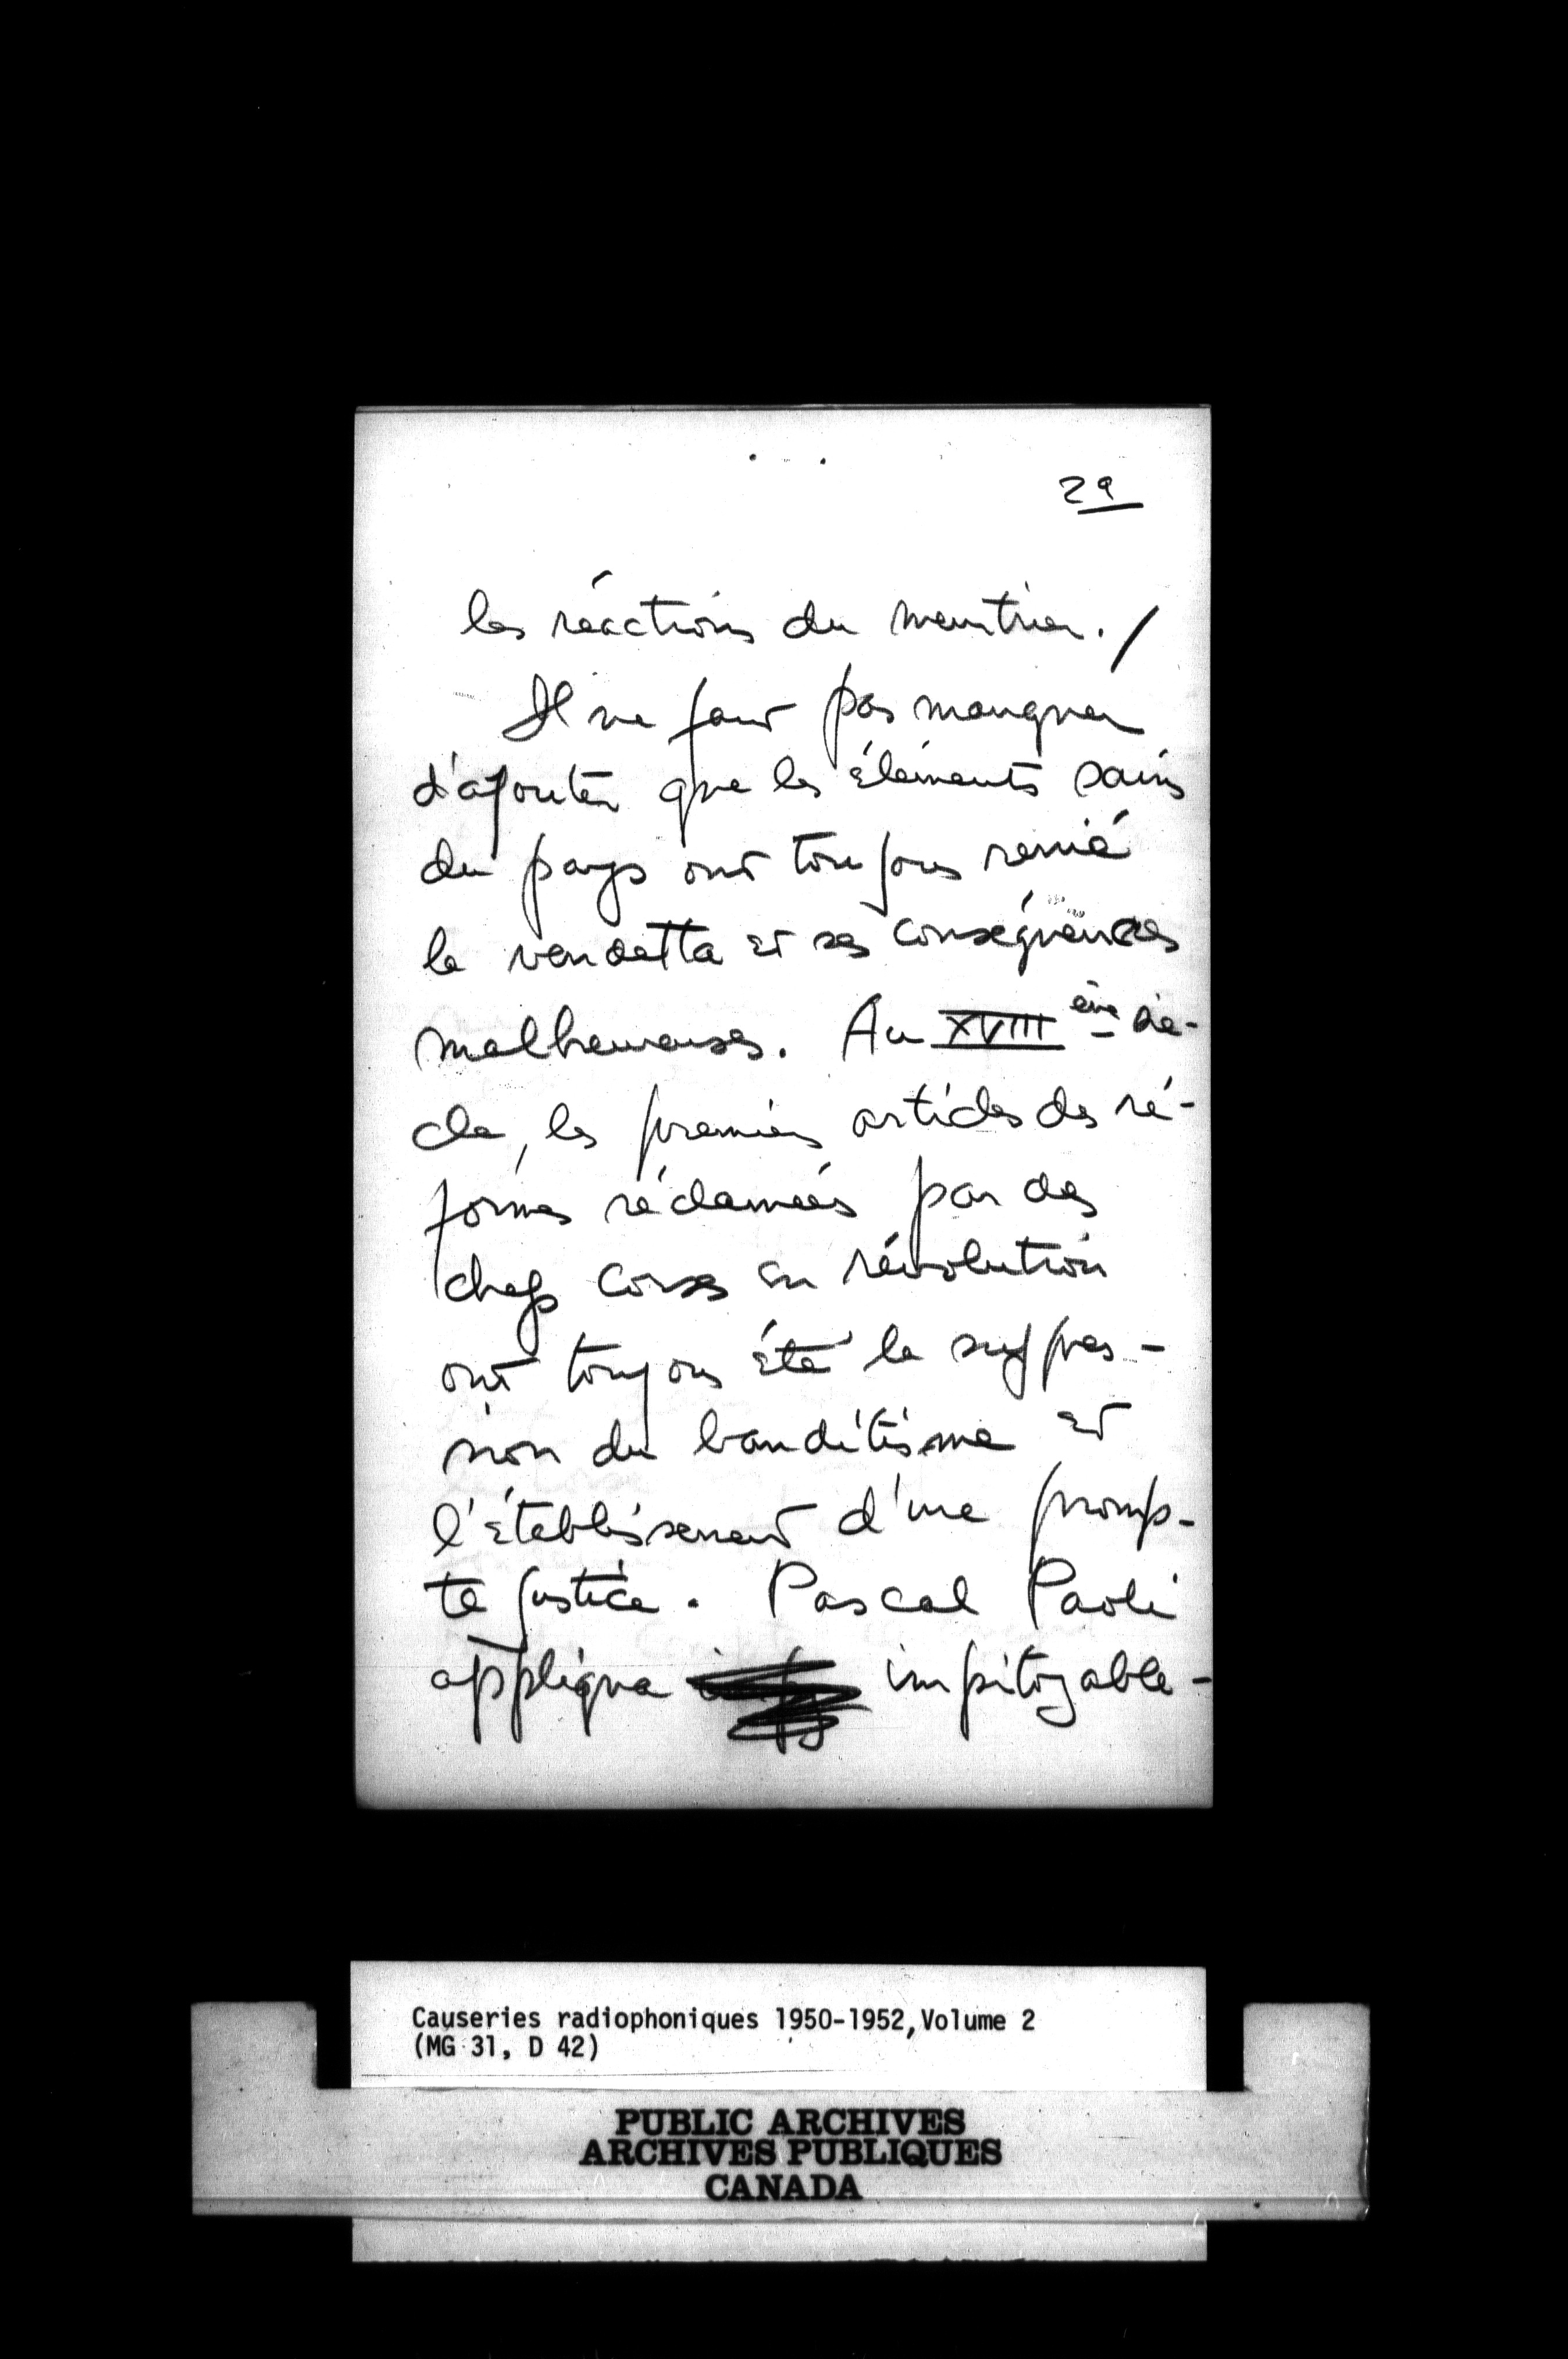 29
les réactions du meurtrier. /
Il ne faut pas manquer
d'ajouter que les éléments sains
du pays ont toujours renié
la vendetta et ses conséquences
malheureuses. Au XVIII ème siè-
cle, les premiers articles des ré-
formes réclamées par des
chefs corses en révolution
ont toujours été la suppres-
sion du banditisme et
l'établissement d'une promp-
te justice. Pascal Paoli
appliqua impitoyable-
Causeries radiophoniques 1950-1952, Volume 2
(MG 31, D 42)
PUBLIC ARCHIVES
ARCHIVES PUBLIQUES
CANADA